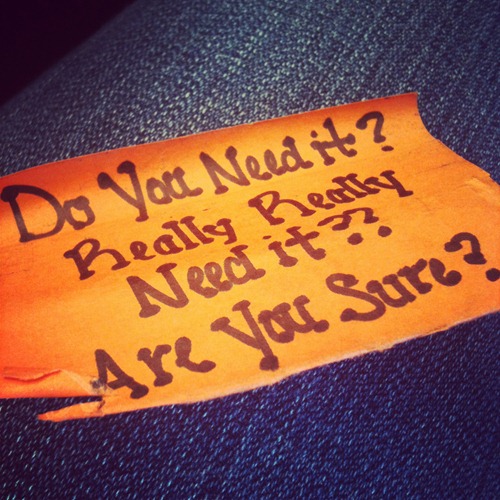 Do You Need it?
Really Really
Need it??
Are You Sure?